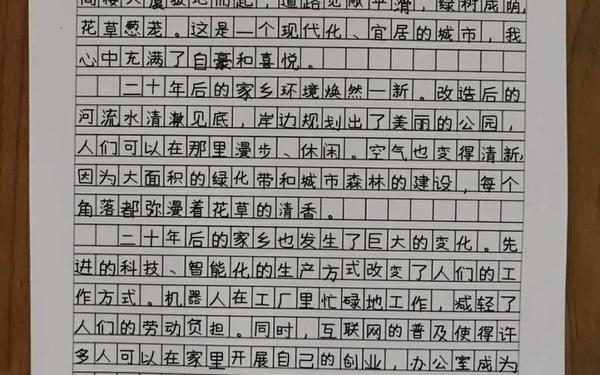 高楼大厦拔地而起，道路宽敞平滑，绿树成荫，
花草葱茏。这是一个现代化、宜居的城市，我
心中充满了自豪和喜悦。
二十年后的家乡环境焕然一新。改造后的
河流水清澈见底，岸边规划出了美丽的公园，
人们可以在那里漫步、休闲。空气也变得清新，
因为大面积的绿化带和城市森林的建设，每个
角落都弥漫着花草的清香。
二十年后的家乡也发生了巨大的变化。先
进的科技、智能化的生产方式改变了人们的工
作方式。机器人在工厂里忙碌地工作，减轻了
人们的劳动负担。同时，互联网的普及使得许
多人可以在家里开展自己的创业，办公室成为